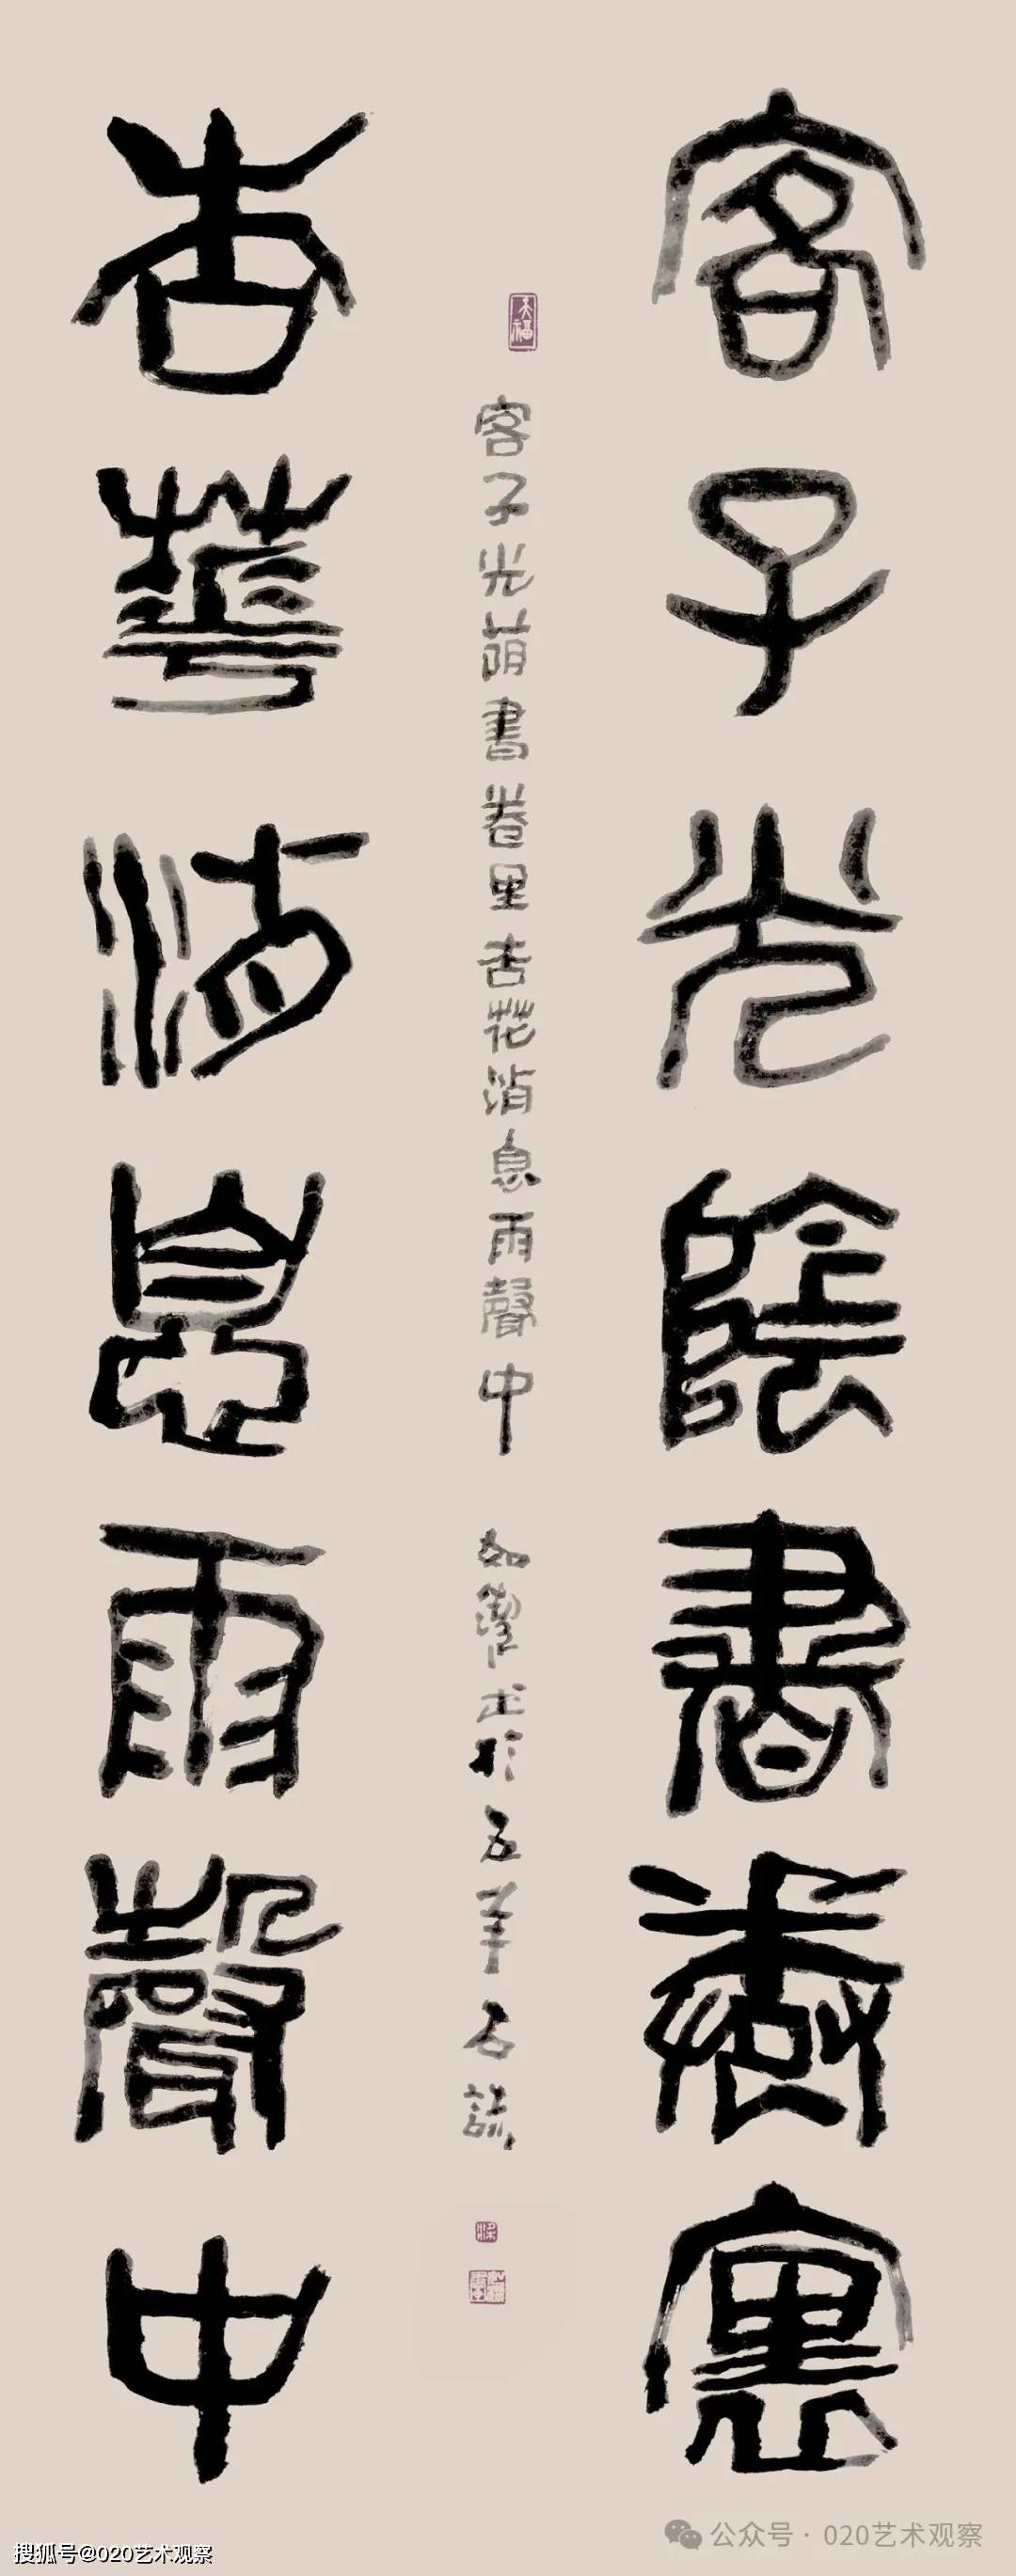 客子光陰書卷裏
杏華消息雨聲中
天福
客子光蔭書卷里杏花消息雨聲中
於五羊
搜狐号@020艺术观察
公众号·020艺术观察